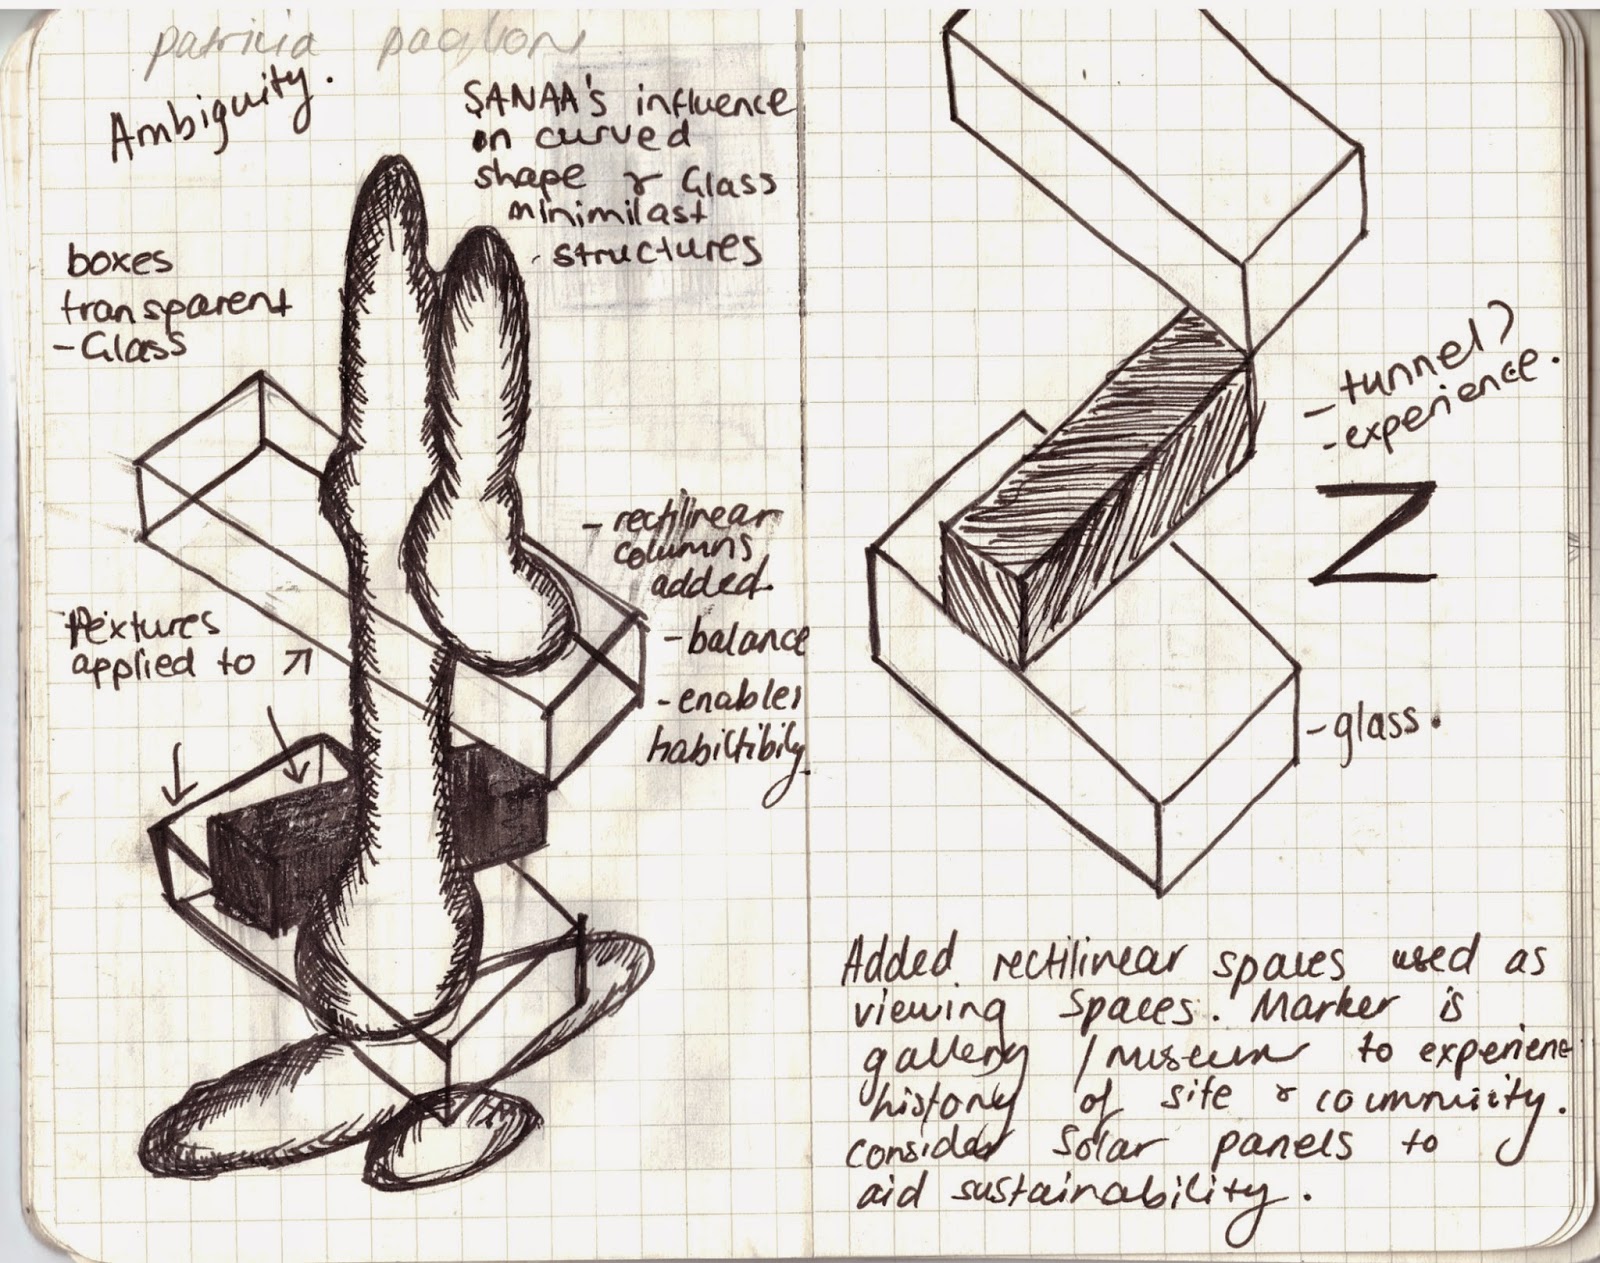 patricia
Ambiguity.
SANAA's influence
on curved
shape & Glass
minimilast
structures
boxes
transparent
- Glass
- rectilinear
columns
added.
- balance
- enables
habiltibily.
Textures
applied to ↗
- tunnel?
- experience.
Z
- glass.
Added rectilinear spaces used as
viewing spaces. Marker is
gallery / museum to experience
history of site & community.
consider Solar panels to
aid sustainability.